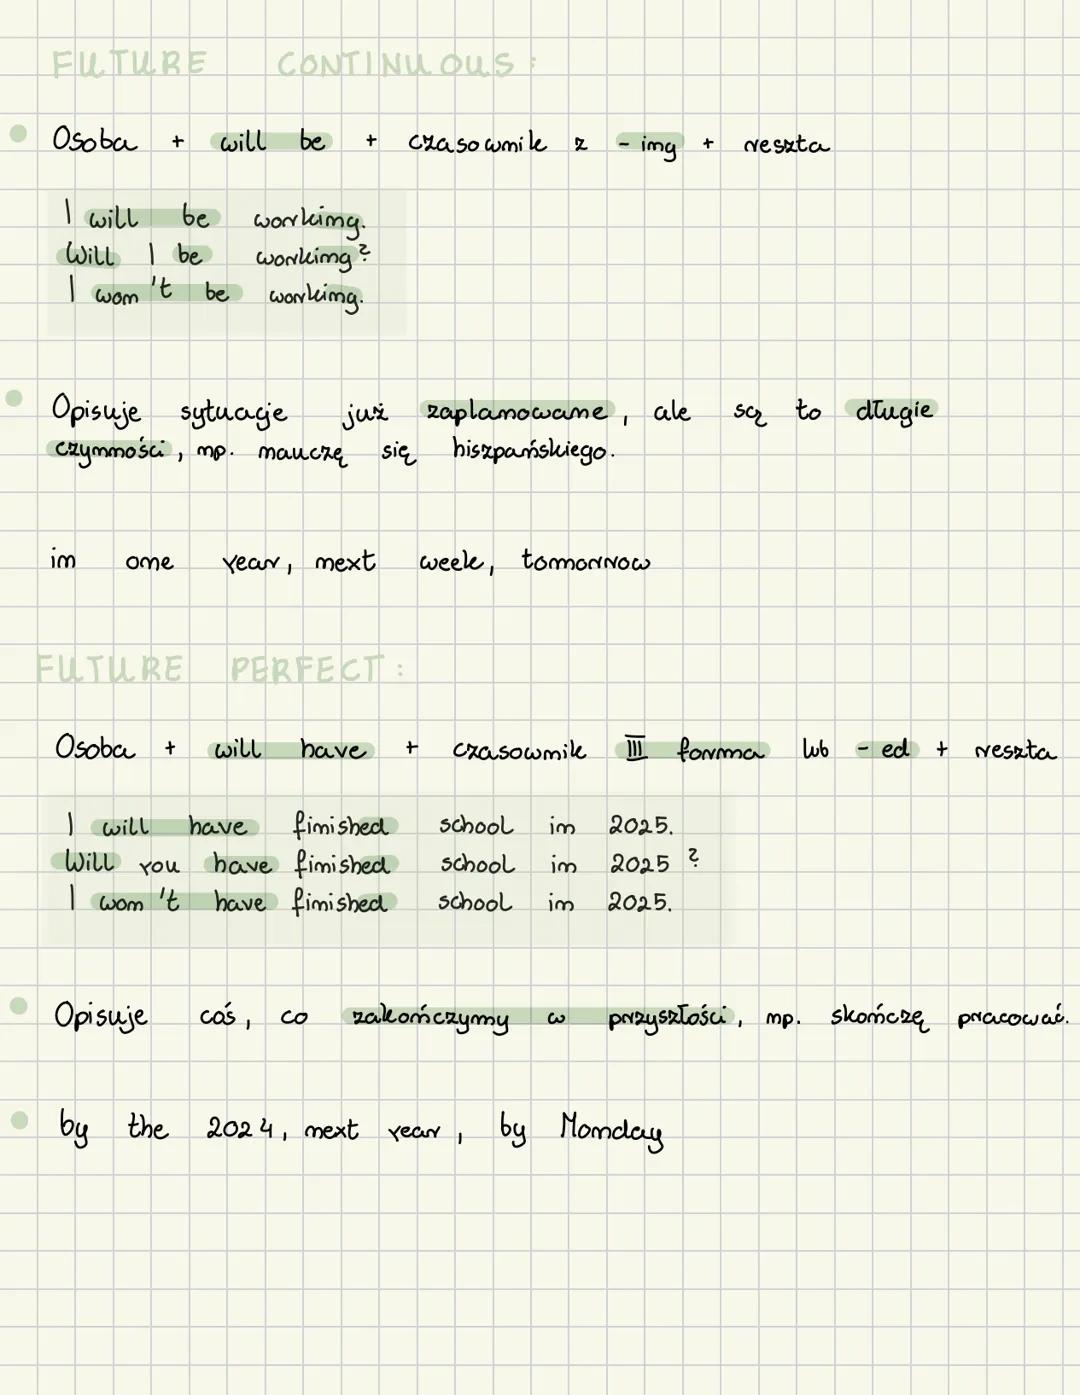 FUTURE CONTINUOUS:
Osoba + will be + czasownik z -ing + reszta
I will be working.
Will I be working?
I won't be working.
Opisuje sytuacje już zaplanowane, ale są to długie
czynności, np. nauczę się hiszpańskiego.
in one year, next week, tomorrow
FUTURE PERFECT:
Osoba + will have + czasownik III forma lub -ed + reszta
I will have finished school in 2025.
Will you have finished school in 2025?
I won't have finished school in 2025.
Opisuje coś, co zakończymy w przyszłości, np. skończę pracować.
by the 2024, next year, by Monday